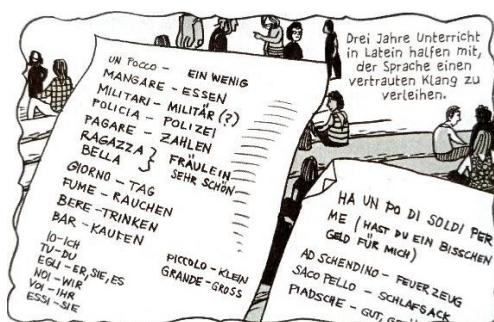 Drei Jahre Unterricht
in Latein halfen mit,
der Sprache einen
vertrauten Klang zu
verleihen.
UN POCCO - EIN WENIG
MANGARE - ESSEN
MILITARI - MILITÄR (?)
POLICIA - POLIZEI
PAGARE - ZAHLEN
RAGAZZA } FRÄULEIN
BELLA } SEHR SCHÖN
GIORNO - TAG
FUME - RAUCHEN
BERE - TRINKEN
BAR - KAUFEN
IO - ICH
TU - DU
EGLI - ER, SIE, ES
NOI - WIR
VOI - IHR
ESSI - SIE
PICCOLO - KLEIN
GRANDE - GROSS
HA UN PO DI SOLDI PER
ME (HAST DU EIN BISSCHEN
GELD FÜR MICH)
AD SCHENDINO - FEUERZEUG
SACO PELLO - SCHLAFSACK
PIADSCHE - GUT,